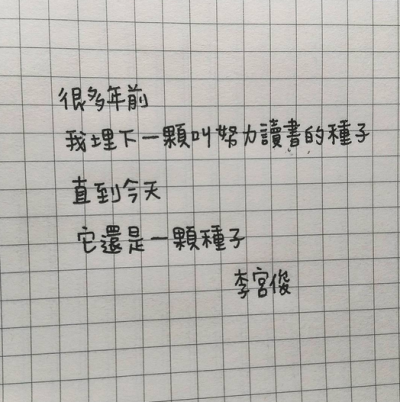 很多年前
我埋下一顆叫努力讀書的種子
直到今天
它還是一顆種子
李宮俊